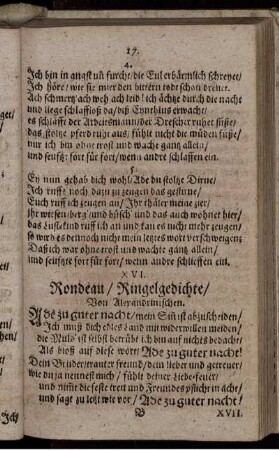 17.
4.
Ich bin in angst uñ furcht/ die Eul erbärmlich schreyet/
Ich höre/ wie sie mir den bittern todt schon drewet.
Ach schmertz/ ach weh ach leid! ich ächtze durch die nacht
und liege schlafloß da/ biß Cynthius erwacht/
es schlafft der Arbeitsmann/ der Drescher ruhet süße/
das stoltze pferd ruht auß/ fühlt nicht die müden füße/
nur ich bin ohne trost und wache gantz allein/
und seufftz fort für fort/ wenn andre schlaffen ein.
5.
Ey nun gehab dich wohl/ Ade du stoltze Dirne/
Ich ruffe noch dazu zu zeugen das gestirne/
Euch ruff ich zeugen an/ Ihr thäler meine zier/
ihr wiesen/ berg' und büsch' und das auch wohnet hier/
das ruff ich an und kan es nicht mehr zeugen/
so wird es dennoch nicht mein letztes wort verschweigen:
Daß ich war ohne trost und wachte gantz allein/
und seufftzte fort für fort/ wenn andre schlieffen ein.
XVI.
Rondeau/ Ringelgedichte/
Von Alexandrinischen.
Ade zu guter nacht/ mein Sinn ist abzuscheiden/
Ich muß dich edles Land mit widerwillen meiden/
die Mus' ist selbst betrübt ich bin auf nichts bedacht/
Als bloß auf diese wort/ Ade zu guter nacht!
Dein Bruder/ wanter freund/ dein lieber und getreuer/
wie du ja nennest mich/ fühlt deiner Liebe-feuer/
und nim̃t die feste treu und Freundes pflicht in acht/
und sagt zu letzt wie vor/ Ade zu guter nacht!
B
XVII.